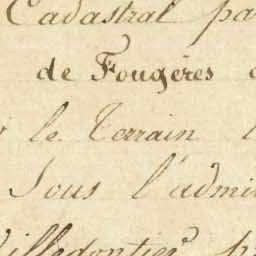 Cadastral pa
de Fougères
le Terrain l
Sous l'admi
Villedontier p